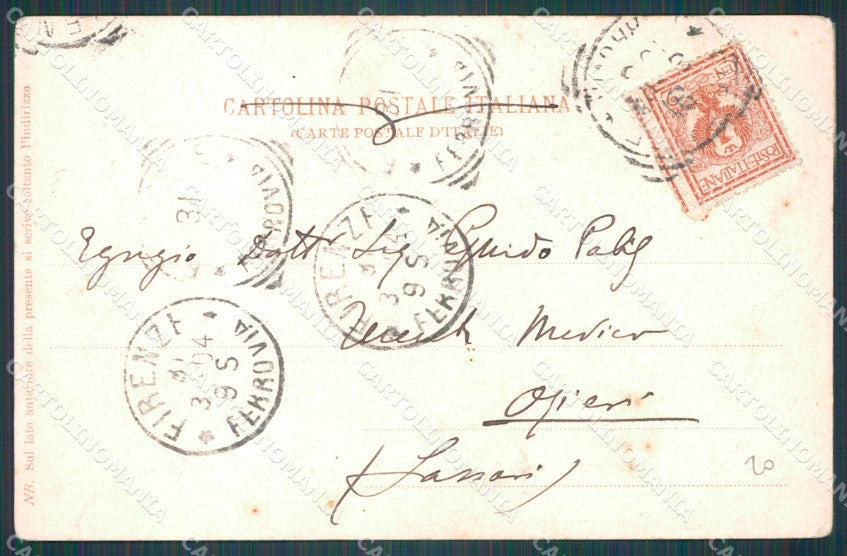 CARTOLINA POSTALE ITALIANA
(CARTE POSTALE D'ITALIE)
NB. Sul lato anteriore della presente si scrive soltanto l'indirizzo
POSTE·ITALIANE
FERROVIA
31
FERROVIA
FIRENZE
3
95
FERROVIA
FIRENZE
31
3 04
95
FERROVIA
Egregio Dott Sig Guido
Medico
Ozieri
(Sassari)
20
CARTOLINOMANIA